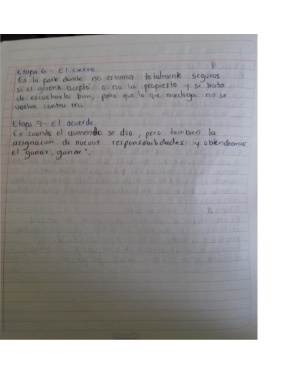 Etapa 6 - El cierre
Es la parte donde no estamos totalmente seguros
si el cliente acepta o no la propuesta y se trata
de escucharlo bien, para que lo que nos diga no se
vuelva contra mi.
Etapa 7 - El acuerdo.
Es cuando el acuerdo se dio, pero tambien la
asignacion de nuevas responsabilidades y obtendremos
el "ganar, ganar".